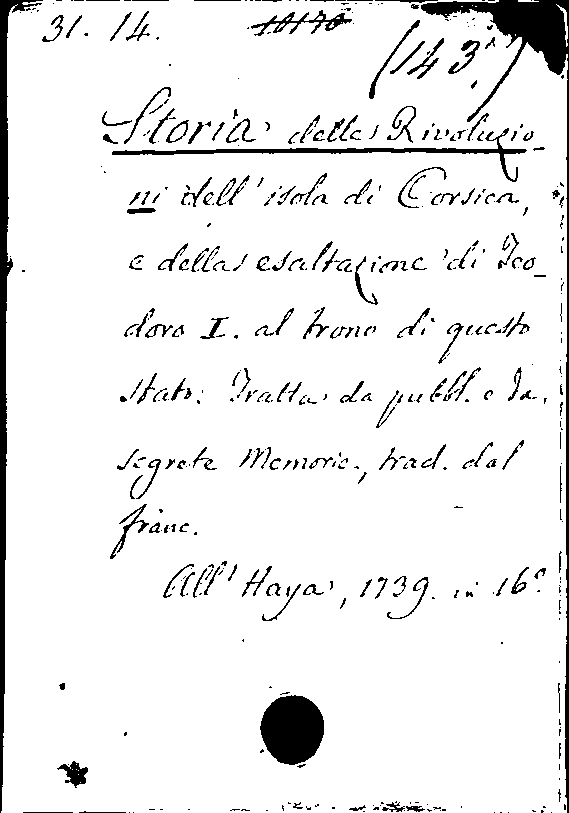 31. 14. 10170
(143.)
Storia delle Rivoluzio-
ni dell' isola di Corsica,
e della esaltazione di Teo-
doro I. al trono di questo
Stato: Tratta da pubbl. e da
segrete Memorie, trad. dal
franc.
All' Haya, 1739. in 16.°